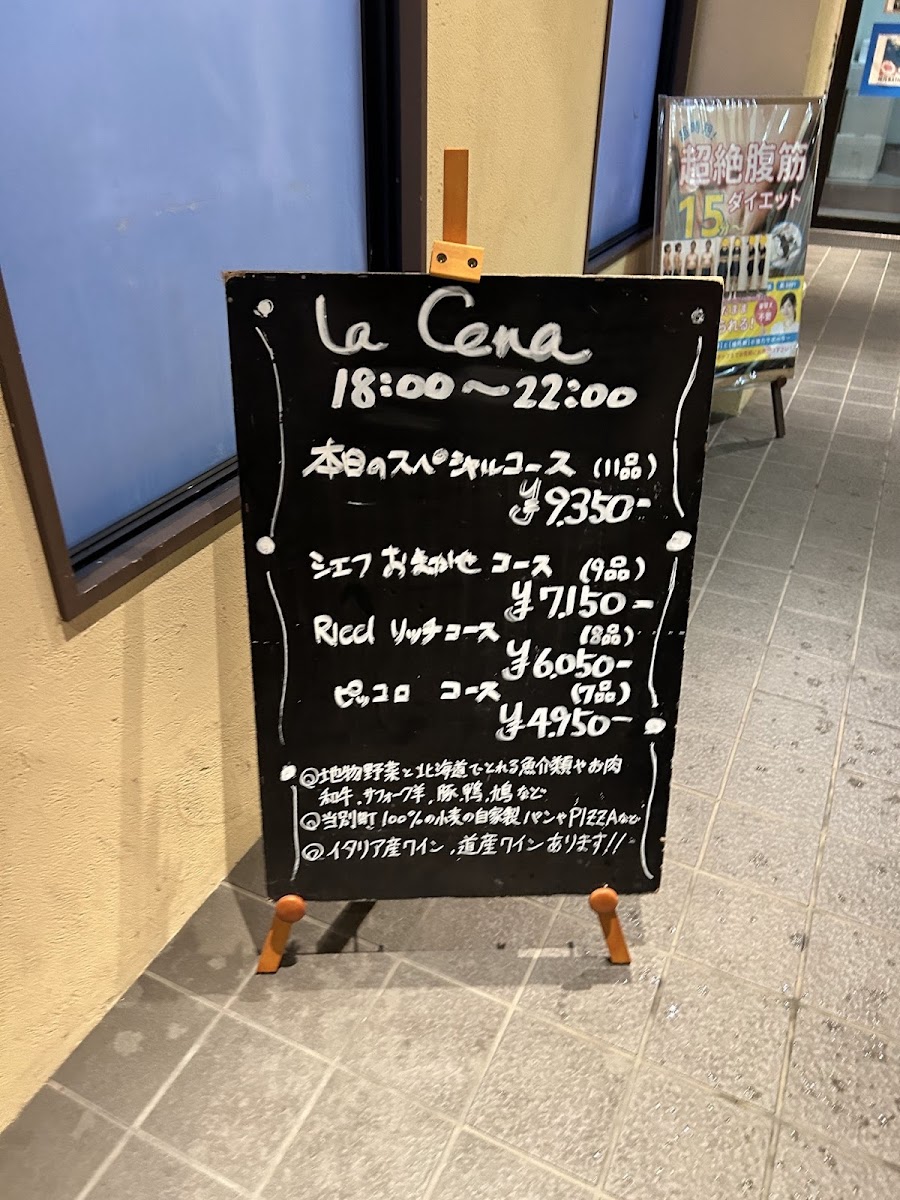 La Cena
18:00〜22:00
本日のスペシャルコース (11品)
¥9.350-
シェフ おまかせ コース (9品)
¥7.150-
Ricci リッチコース (8品)
¥6.050-
ピッコロ コース (7品)
¥4.950-
◎地物野菜と北海道でとれる魚介類やお肉
和牛、サフォーク羊、豚、鴨、鳩など
◎当別町100%の小麦の自家製パンやPIZZAなど
◎イタリア産ワイン、道産ワインあります!!
超絶腹筋
15分〜
ダイエット